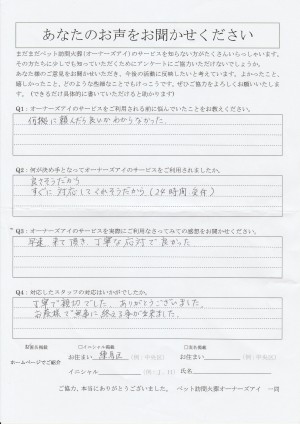 あなたのお声をお聞かせください
まだまだペット訪問火葬(オーナーズアイ)のサービスを知らない方がたくさんいらっしゃいます。
その方たちに少しでも知っていただくためにアンケートにご協力いただけないでしょうか。
あなた様のご意見をお聞かせいただき、今後の活動に反映したいと考えています。よかったこと、
嬉しかったこと、どのような些細なことでもけっこうです。ぜひ協力をよろしくお願いいたしま
す。(できるだけ具体的に書いていただけると助かります)
Q1:オーナーズアイのサービスをご利用される前に悩んでいたことをお教えください。
何処に頼んだら良いかわからなかった.
Q2:何が決め手となってオーナーズアイのサービスをご利用されましたか。
良さそうだから
すぐに対応してくれそうだから(24時間受付)
Q3:オーナーズアイのサービスを実際にご利用なさってみての感想をお聞かせください。
早速、来て頂き、丁寧な応対で良かった
Q4:対応したスタッフの対応はいかがでしたか。
丁寧で親切でした。ありがとうございました。
お蔭様で無事に終える事が出来ました.
ホームページでご紹介
□イニシャル掲載
お住まい 練馬区 (例:中央区)
イニシャル
□実名掲載
お住まい (例:中央区)
氏名
ご協力、本当にありがとうございました。 ペット訪問火葬オーナーズアイ 一同